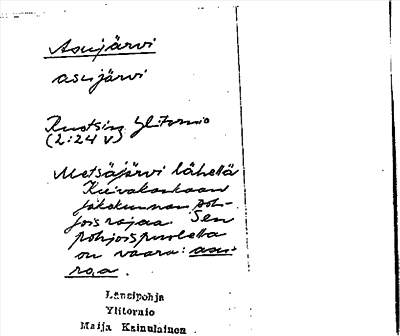 Asujärvi
asujärvi
Ruotsin Ylitornio
(2:24 v)
Metsäjärvi lähellä
Kuivakankaan
jakokunnan poh-
joisrajaa. Sen
pohjoispuolella
on vaara: asu-
roa.
Länsipohja
Ylitornio
Maija Kainulainen